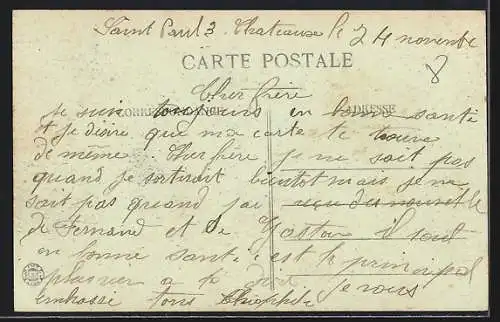 Saint Paul 3 Chateaux le 24 novembre
8
CARTE POSTALE
Cher frère
CORRESPONDANCE ADRESSE
je suis toujours en bonne santé
et je désire que ma carte te trouve
de même. Cher frère je ne sait pas
quand je sortirait bientot mais je ne
sait pas quand j'ai reçu des nouvelle
de Fernand et de Gaston il sont
en bonne santé c'est le principal
plus rien a te dire je vous
embrasse tous Théophile